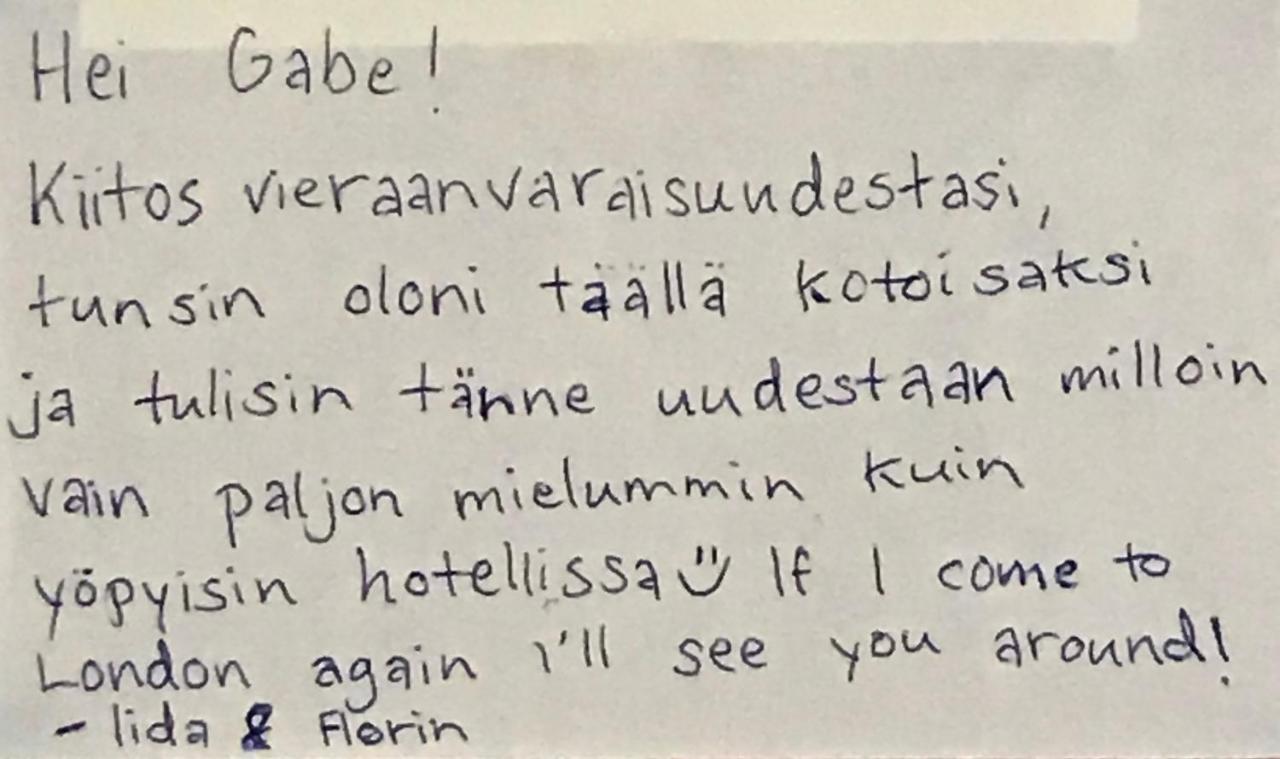 Hei Gabe!
Kiitos vieraanvaraisuudestasi,
tunsin oloni täällä kotoisaksi
ja tulisin tänne uudestaan milloin
vain paljon mielummin kuin
yöpyisin hotellissa Ü If I come to
London again I'll see you around!
- Iida & Florin